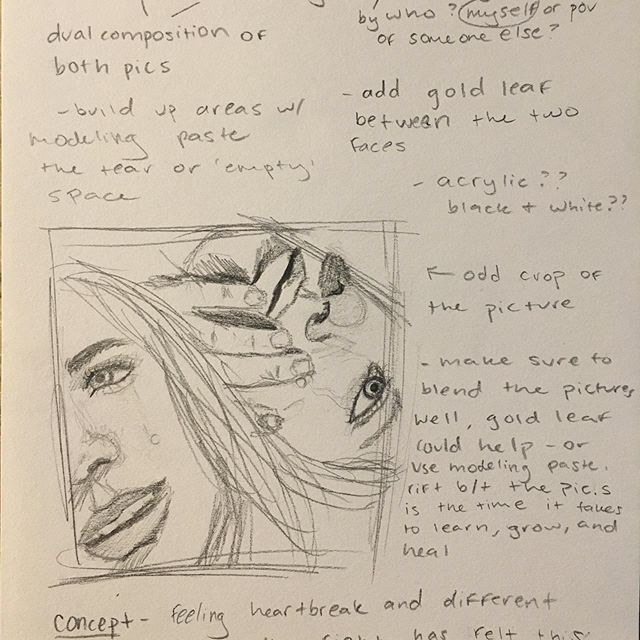 dual composition of
both pics
- build up areas w/
modeling paste
the tear or 'empty'
space
by who? myself or pov
of someone else?
- add gold leaf
between the two
faces
- acrylic??
black + white??
← odd crop of
the picture
- make sure to
blend the pictures
well, gold leaf
could help - or
use modeling paste.
rift b/t the pics
is the time it takes
to learn, grow, and
heal
concept - feeling heartbreak and different
has felt this